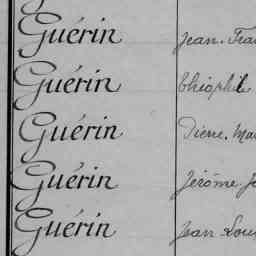 Guérin Jean-Fra
Guérin Théophile
Guérin Pierre-Ma
Guérin Jérôme J
Guérin Jean-Loui